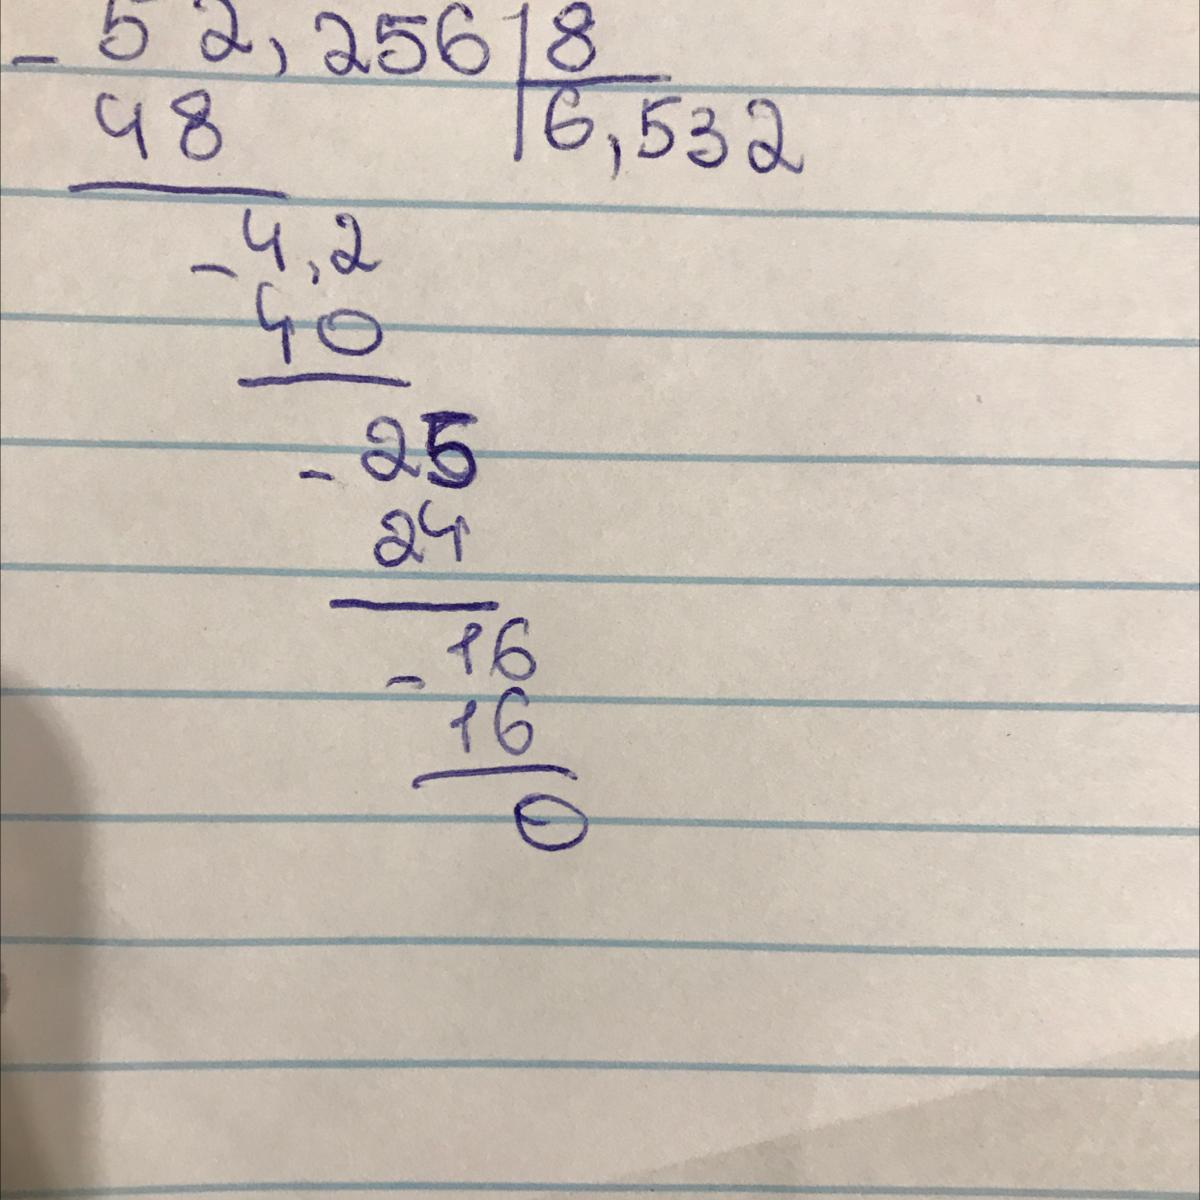 - 52,256 | 8
48 | 6,532
- 4,2
40
- 25
24
- 16
16
0